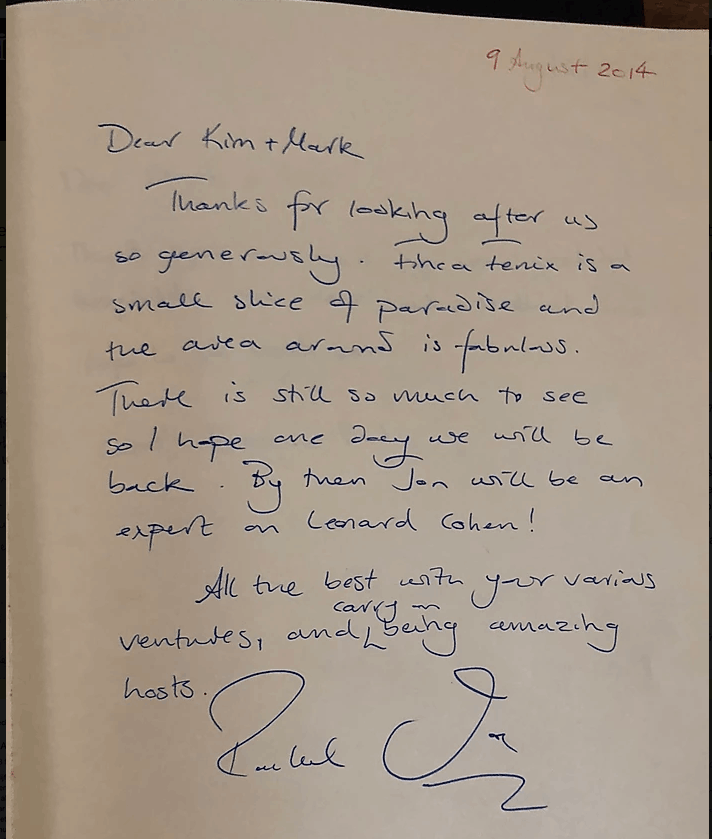 9 August 2014
Dear Kim + Mark
Thanks for looking after us
so generously. Finca Fenix is a
small slice of paradise and
the area around is fabulous.
There is still so much to see
so I hope one day we will be
back. By then Jon will be an
expert on Leonard Cohen!
All the best with your various
carry on
ventures, and being amazing
hosts.
Rachel Jon